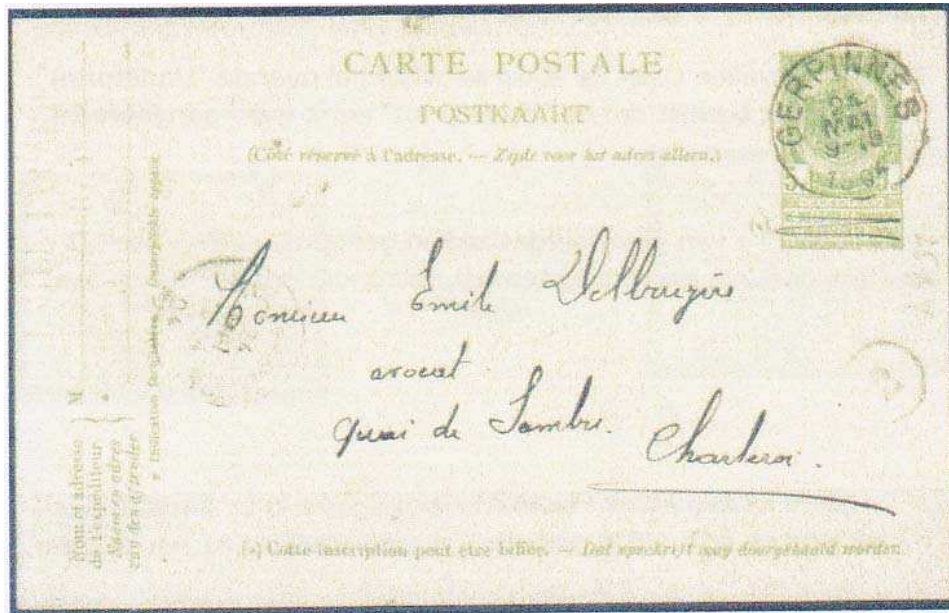 CARTE POSTALE
POSTKAART
(Côté réservé à l'adresse. — Zijde voor het adres alleen.)
GERPINNES
MAI
9-
5 5
Monsieur Emile Delbruyère
avocat
quai de Sambre.
Charleroi.
M
Nom et adresse
de l'expéditeur
Naam en adres
van den afzender
Indication
(*) Cette inscription peut être biffée. — Dat opschrift mag doorgehaald worden.